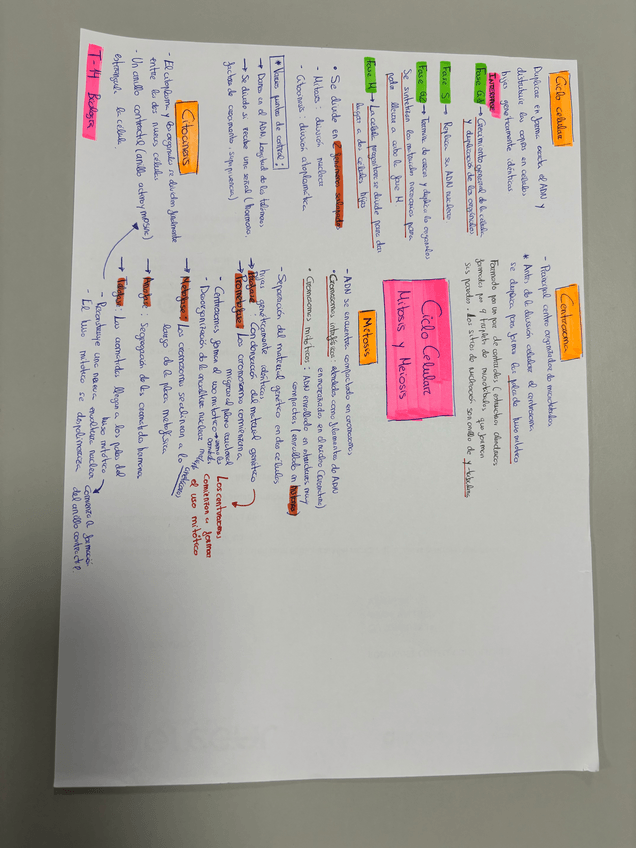 Ciclo celular
Duplicar en forma exacta el ADN y
distribuir las copias en células
hijas genéticamente idénticas
Interfase
Fase G1 → Crecimiento general de la célula
y duplicación de los orgánulos
Fase S → Replica su ADN nuclear
Fase G2 → Termina de crecer y duplica los orgánulos
Se sintetizan los materiales necesarios para
poder llevar a cabo la fase M
Fase M → La célula progenitora se divide para dar
lugar a dos células hijas
• Se divide en 2
- Mitosis: división nuclear
- Citocinesis: división citoplasmática
* Varios puntos de control:
→ Daños en el ADN, longitud de los telómeros
→ Se divide si recibe una señal (hormona,
factor de crecimiento,
Citocinesis
- El citoplasma y los orgánulos se dividen
entre las dos nuevas células
- Un anillo contráctil (anillo actina y miosina)
estrangula la célula.
T-14 Biología
Centrosoma
- Principal centro organizador de microtúbulos
* Antes de la división celular el centrosoma
se duplica para formar los polos del huso mitótico
Formado por un par de centriolos (estructura cilíndrica
formadas por 9 tripletes de microtúbulos que forman
sus paredes. Los sitios de nucleación son anillos de γ-tubulina
Ciclo Celular:
Mitosis y Meiosis
Mitosis
- ADN se encuentra compactado en cromosomas
• Cromosomas interfásicos: extendidos como filamentos de ADN
enmarañados en el núcleo (cromatina)
• Cromosomas mitóticos: ADN enrollado en estructuras muy
compactas (enrollado en
- Separación del material genético en dos células
hijas genéticamente idénticas.
→ Profase: Condensación del material genético
→ Prometafase: Los cromosomas comienzan a
migrar al plano ecuatorial
- Centrosomas forman el uso mitótico
- Desorganización de la envoltura nuclear
Los centrosomas
comienzan a formar
el uso mitótico
→ Metafase: Los cromosomas se alinean a lo
largo de la placa metafásica
→ Anafase: segregación de las cromátidas hermanas
→ Telofase: Las cromátidas llegan a los polos del
huso mitótico
- Reconstruye una nueva envoltura nuclear
- El huso mitótico se despolimeriza
comienza la formación
del anillo contráctil